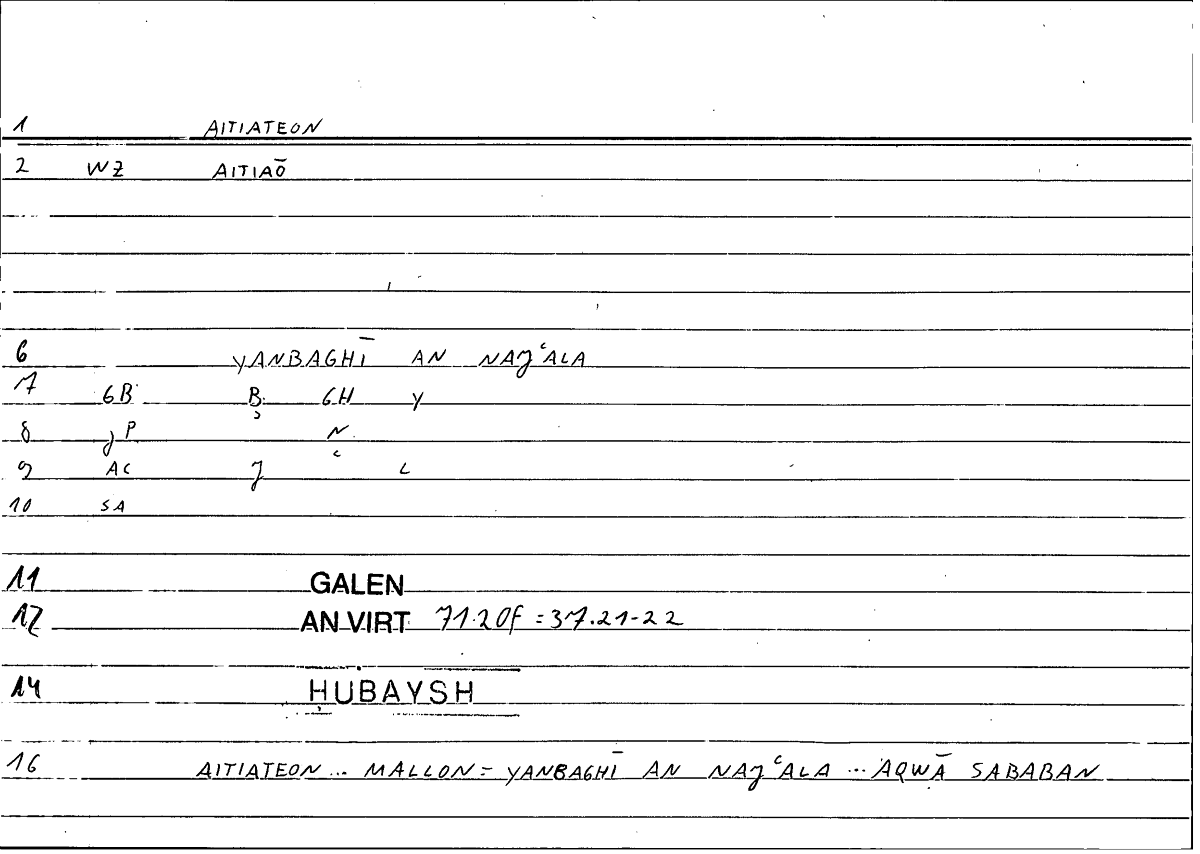 1 AITIATEON
2 WZ AITIAŌ
6 YANBAGHĪ AN NAJʿALA
7 GB B GH Y
8 JP N
9 AC J L
10 SA
11 GALEN
12 AN VIRT 71.20f = 37.21-22
14 ḤUBAYSH
16 AITIATEON ... MALLON = YANBAGHĪ AN NAJʿALA ... AQWĀ SABABAN